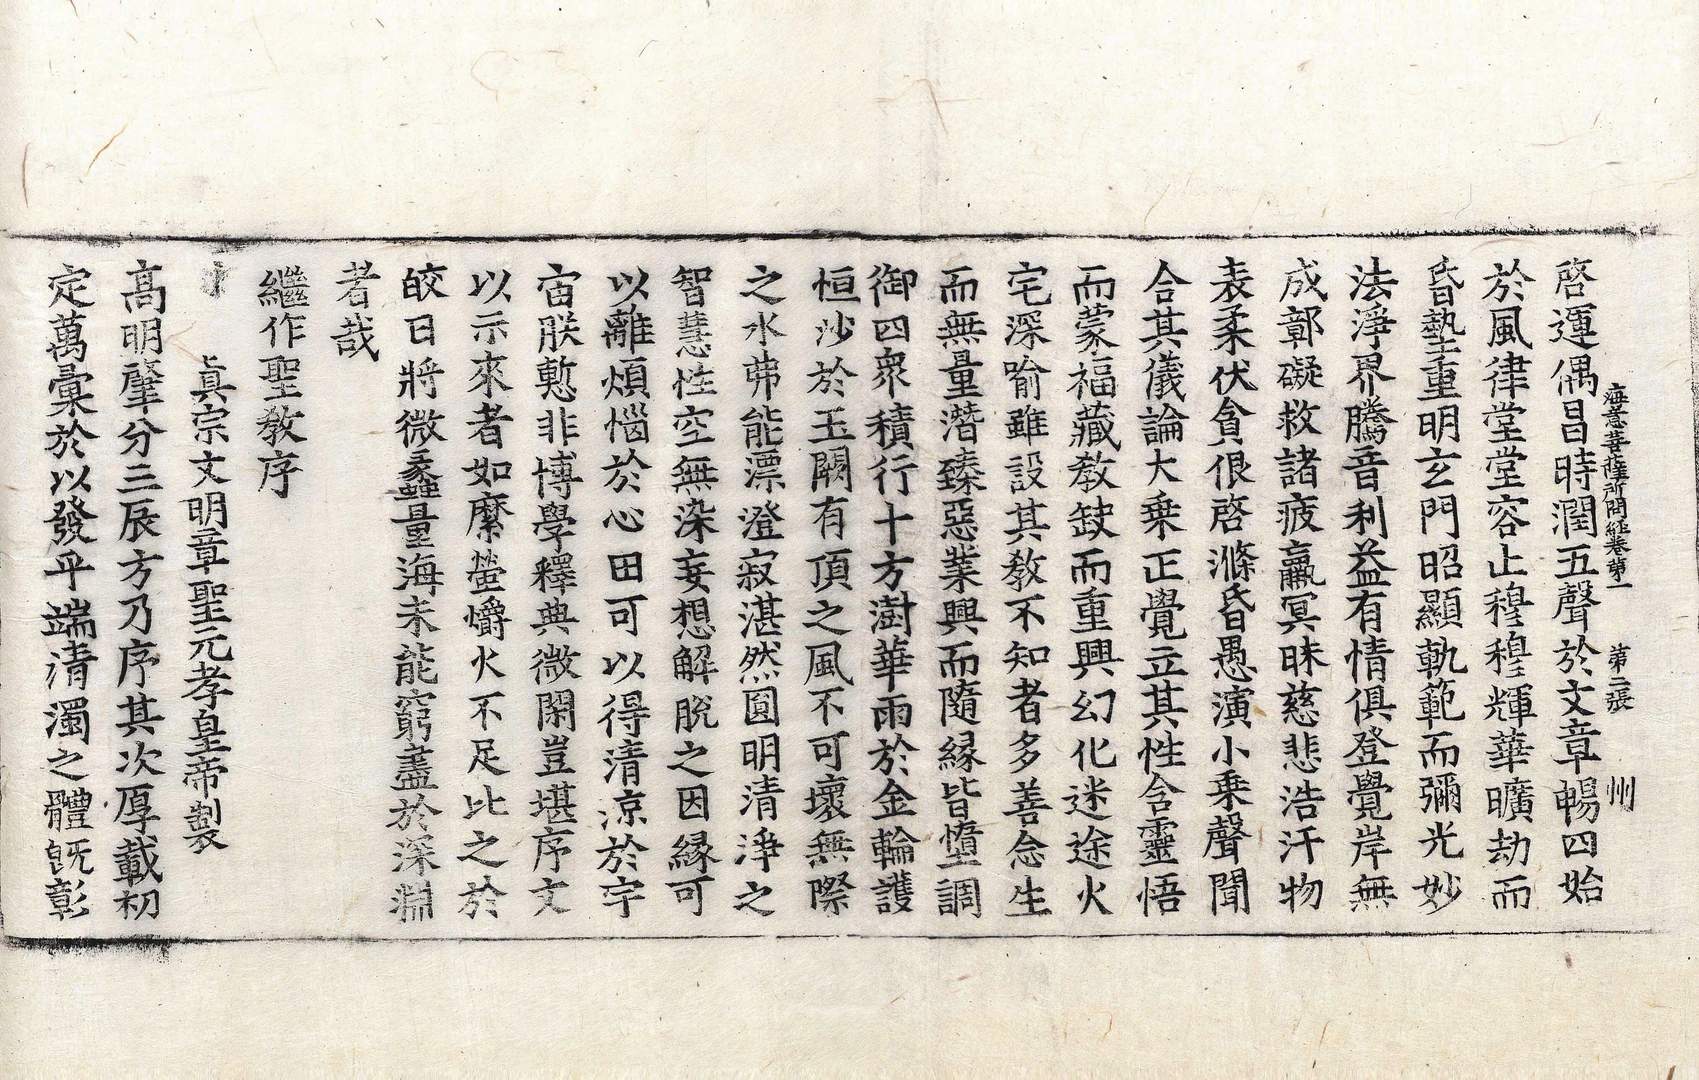 海意菩薩所問經卷第一　第二張　州
啓運偶昌時潤五聲於文章暢四始
於風律堂堂容止穆穆輝華曠劫而
昏墊重明玄門昭顯軌範而彌光妙
法淨界騰音利益有情俱登覺岸無
成鄣礙救諸疲羸冥昧慈悲浩汗物
表柔伏貪佷啓滌昏愚演小乗聲聞
合其儀論大乗正覺立其性含靈悟
而蒙福藏教缺而重興幻化迷途火
宅深喻雖設其教不知者多善念生
而無量潛臻惡業興而隨縁皆墮調
御四衆積行十方澍華雨於金輪護
恒沙於玉闕有頂之風不可壞無際
之水弗能漂澄寂湛然圓明清淨之
智慧性空無染妄想解脫之因縁可
以離煩惱於心田可以得清凉於宇
宙朕慙非博學釋典微閑豈堪序文
以示來者如縻螢爝火不足比之於
皎日將微蠡量海未能窮盡於深淵
者哉
繼作聖教序
眞宗文明章聖元孝皇帝製
高明肇分三辰方乃序其次厚載初
定萬彙於以發乎端清濁之體旣彰